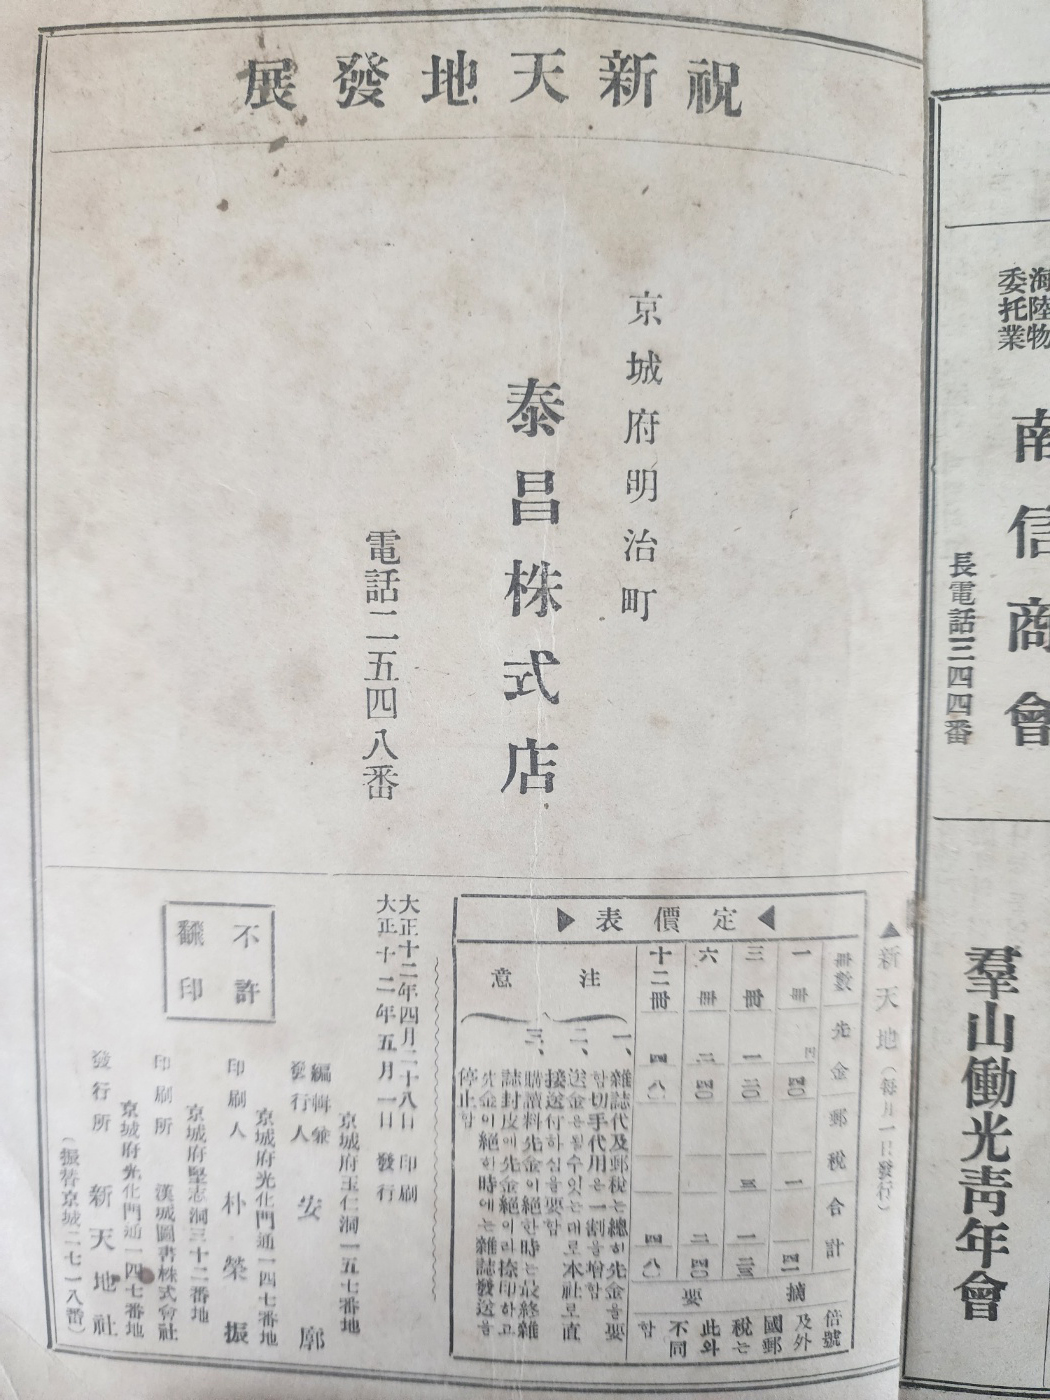 祝新天地發展
京城府明治町
泰昌株式店
電話二五四八番
▲新天地(每月一日發行)
定價表
冊數 先金 郵稅 合計
一冊 四〇 一 四一
三冊 一二〇 三 一二三
六冊 二四〇 二四〇
十二冊 四八〇 四八〇
摘要
倍號及外國郵稅는此와不同함
注意
一、雜誌代及郵稅는總히先金을要함切手代用은一割을增함
二、送金은될수잇는대로本社로直接送付하심을要함
三、購讀料先金이絕한時는最終雜誌封皮에先金絕이라捺印하고先金이絕한時에는雜誌發送을停止함
大正十二年四月二十八日 印刷
大正十二年五月一日 發行
不許飜印
京城府玉仁洞一五七番地
編輯兼發行人 安廓
京城府光化門通一四七番地
印刷人 朴榮振
京城府堅志洞三十二番地
印刷所 漢城圖書株式會社
京城府光化門通一四七番地
發行所 新天地社
(振替京城二七一八番)
海陸物
委托業
南信商會
長電話三四四番
羣山働光靑年會